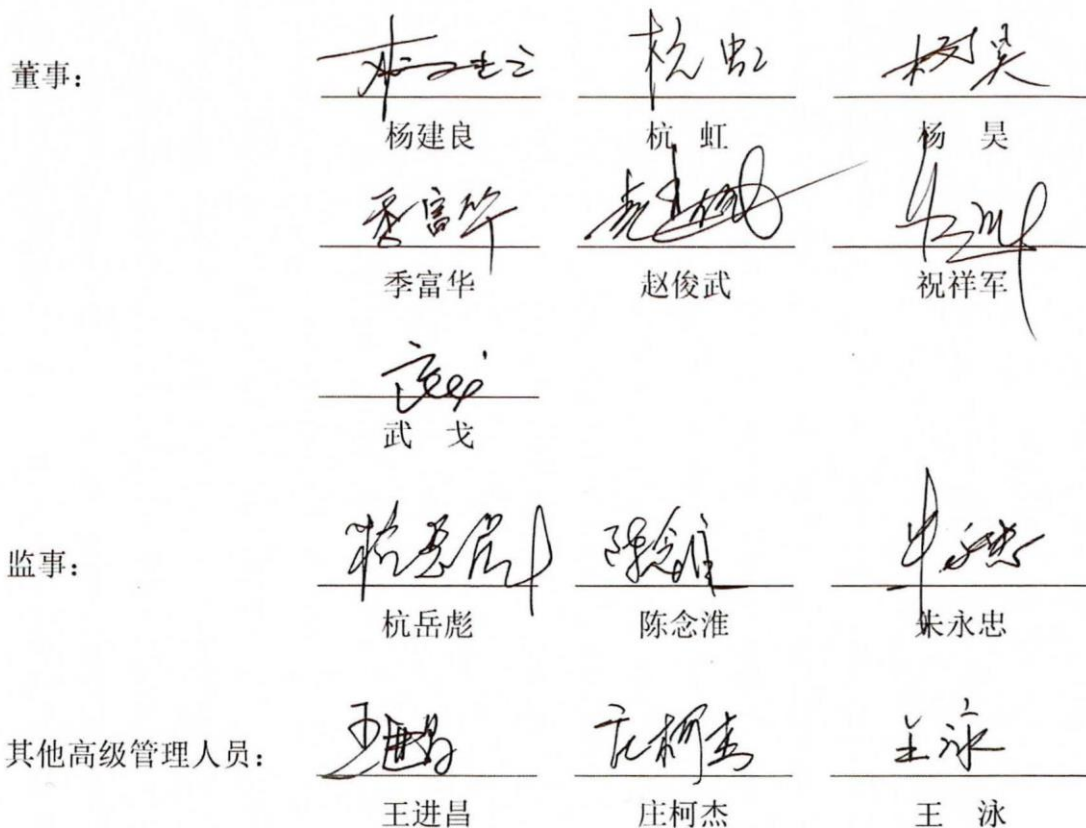 董事：
杨建良 杭 虹 杨 昊
季富华 赵俊武 祝祥军
武 戈
监事：
杭岳彪 陈念淮 朱永忠
其他高级管理人员：
王进昌 庄柯杰 王 泳